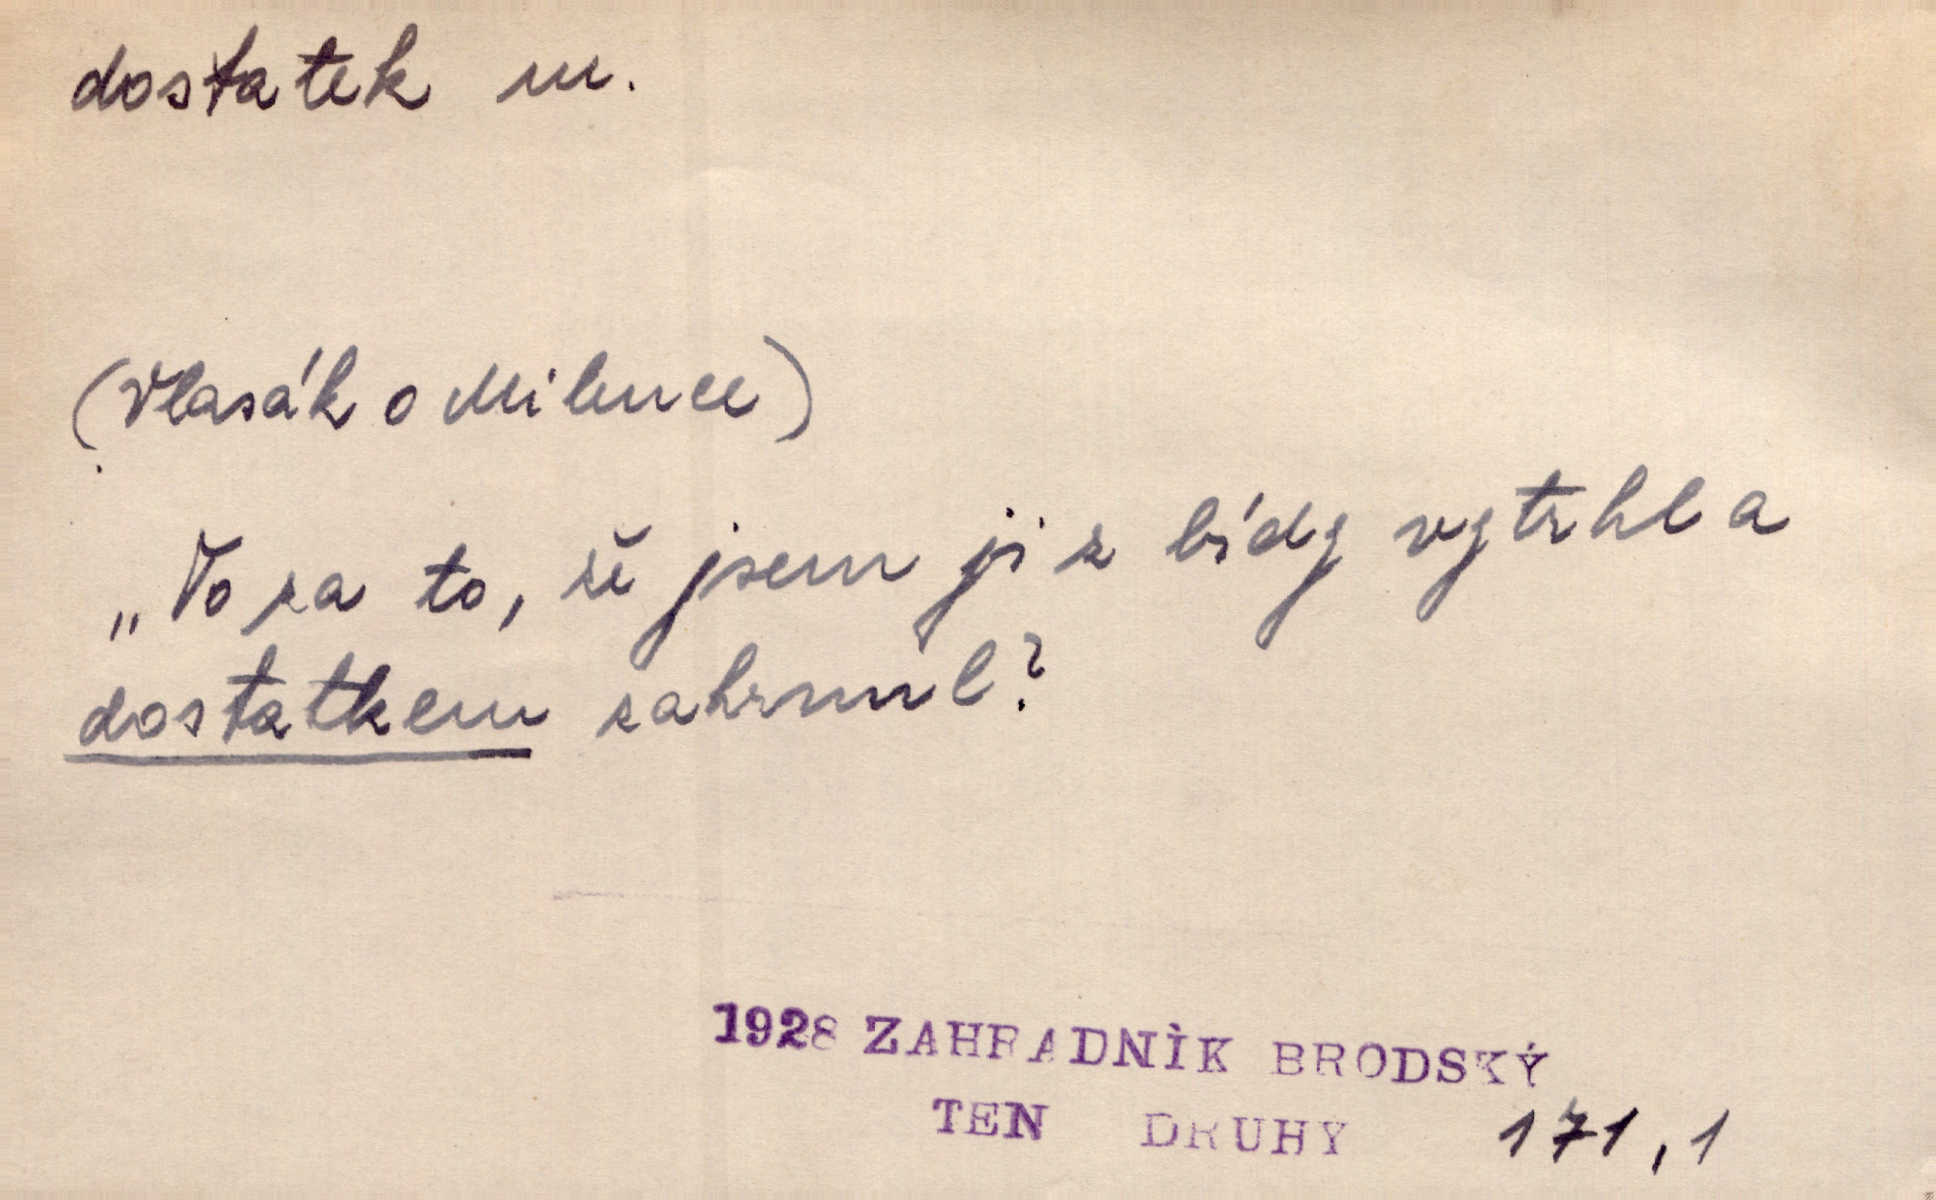 dostatek m.
(Vlasák o Milence)
„To za to, že jsem ji z bídy vytrhl a
dostatkem zahrnul?
1928 ZAHRADNÍK BRODSKÝ
TEN DRUHÝ 171,1